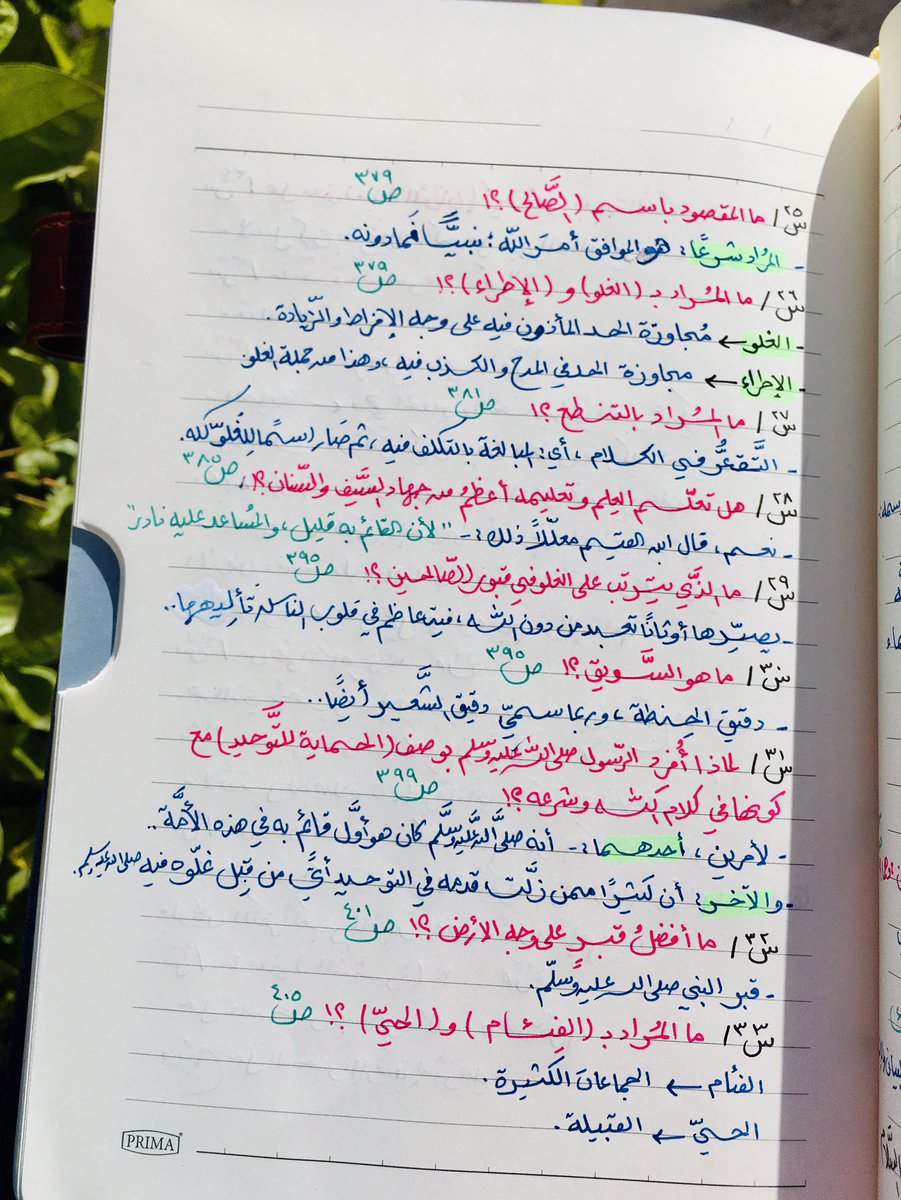 س٢٥/ ما المقصود باسم (الصَّالح)؟! ص٣٧٩
- المُراد شرعًا: هو الموافق أمرَ اللّه؛ نبيًّا فَمادونه.
س٢٦/ ما المُراد بـ (الغلو) و (الإطراء)؟! ص٣٧٩
- الغلو ← مُجاوزة الحد المأذون فيه على وجه الإفراط والزّيادة.
- الإطراء ← مجاوزة الحد في المدح والكذب فيه، وهذا من جملة الغلو
س٢٧/ ما المُراد بالتنطع؟! ص٣٨١
- التَّقعُّر في الكلام، أي: المبالغة بالتكلف فيه، ثم صَار اسمًا للغُلوّ كله.
س٢٨/ هل تعلّم العِلم وتعليمه أعظمُ من جهاد السَّيف والسِّنان؟! ص٣٨٥
- نعم، قال ابن القيم معلّلاً ذلك:- "لأن القائم به قليل، والمُساعد عليه نادر"
س٢٩/ ما الذَّي يترتب على الغلو في قبور الصَّالحين؟! ص٣٩٥
- يصيّرها أوثانًا تعبد من دون اللّه، فيتعاظم في قلوب الناس تأليهها..
س٣٠/ ما هو السَّويق؟! ص٣٩٥
- دقيق الحِنطة، وربما سميّ دقيق الشَّعير أيضًا..
س٣١/ لماذا أُفرد الرّسول صلى اللّه عليه وسلم بوصف (الحماية للتَّوحيد) مع
كونها في كلام اللّه وشرعه؟! ص٣٩٩
- لأمرين، أحدهما:- أنه صلَّى اللَّه عليه وسلَّم كان هو أوَّل قائم به في هذه الأُمَّة..
- والآخر: أن كثيرًا ممن زلَّت قدمه في التوحيد أتيَ من قِبل غلّوه فيه صلى الله عليه وسلم.
س٣٢/ ما أفضلُ قبرٍ على وجه الأرض؟! ص٤٠١
- قبر النبي صلى الله عليه وسلّم.
س٣٣/ ما المُراد بـ (الفِئام) و (الحيّ)؟! ص٤٠٥
الفئام ← الجماعات الكثيرة.
الحيّ ← القبيلة.
PRIMA